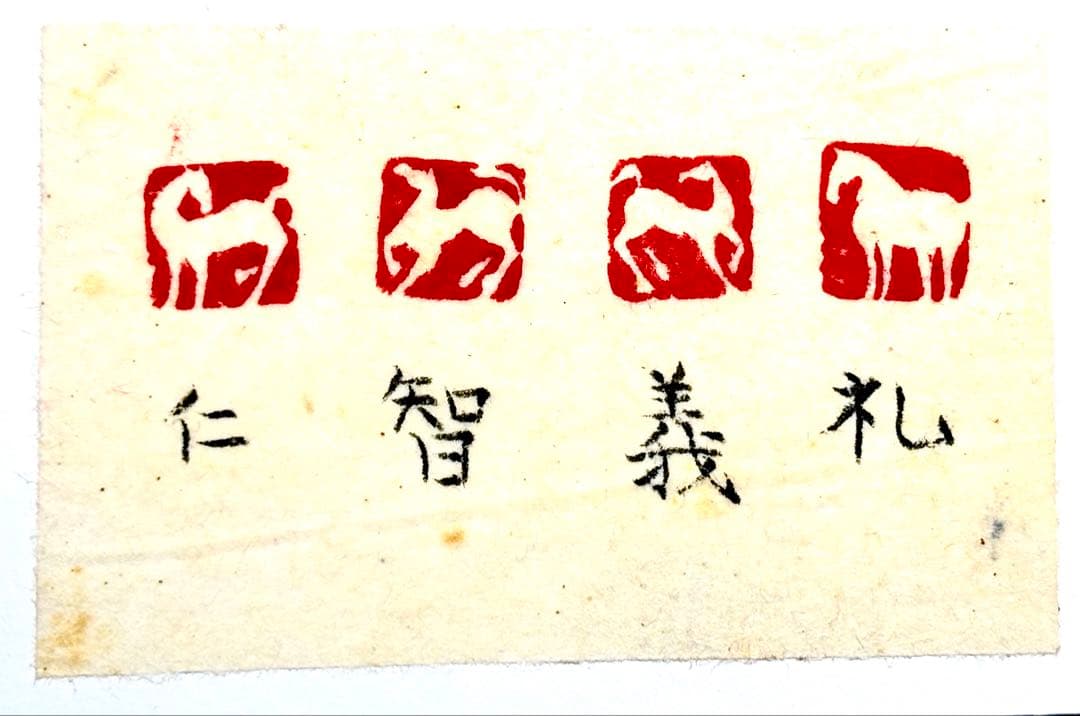 仁 智 義 礼